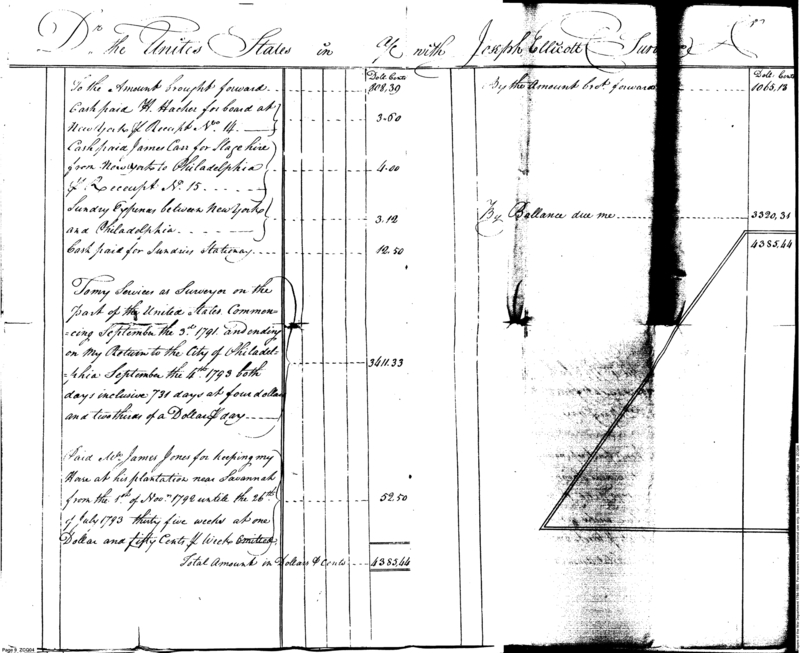 Dr. the United States in a/c with Joseph Ellicott Cr
Dolls Cents
To the Amount brought forward 908,39
Cash paid H. Hacker for board at
New York pr Receipt No. 14. 3.60
Cash paid James Carr for Stage hire
from New york to Philadelphia 4.00
pr. Receeipt No. 15.
Sundry Expenses between New York 3.12
and Philadelphia
Cash paid for Sundries Stationary 12.50
To my Services as Surveyor on the
part of the United States Commen-
=cing September the 3rd 1791 and ending
on my Return to the City of Philadel- 3411.33
=phia September the 4th 1793 both
days inclusive 731 days at four dollars
and two thirds of a Dollar pr day
Paid Mr. James Jones for keeping my
Horse at his plantation near Savannah
from the 1st of Novr. 1792 until the 26th 52.50
of July 1793 thirty five weeks at one
Dollar and fifty Cents pr Week
Total Amount in Dollars & cents 4385,44
Dolls Cents
By the Amount brot. forward 1065,13
By Ballance due me 3320,31
4385,44
Page 9,